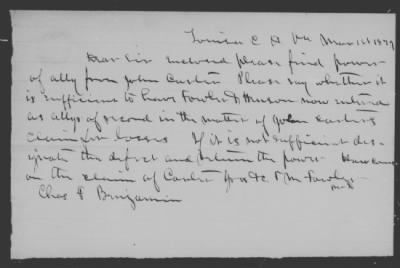 Louisa C H Va Mar 1st 1879
Dear Sir enclosed please find power
of atty from John Carter Please say whether it
is sufficient to have Fowler & now entered
as attys of record in the matter of John Carters
claim for losses If it is not sufficient des-
ignate the defect and return the power
on the claim of Carter
Chas F Benjamin